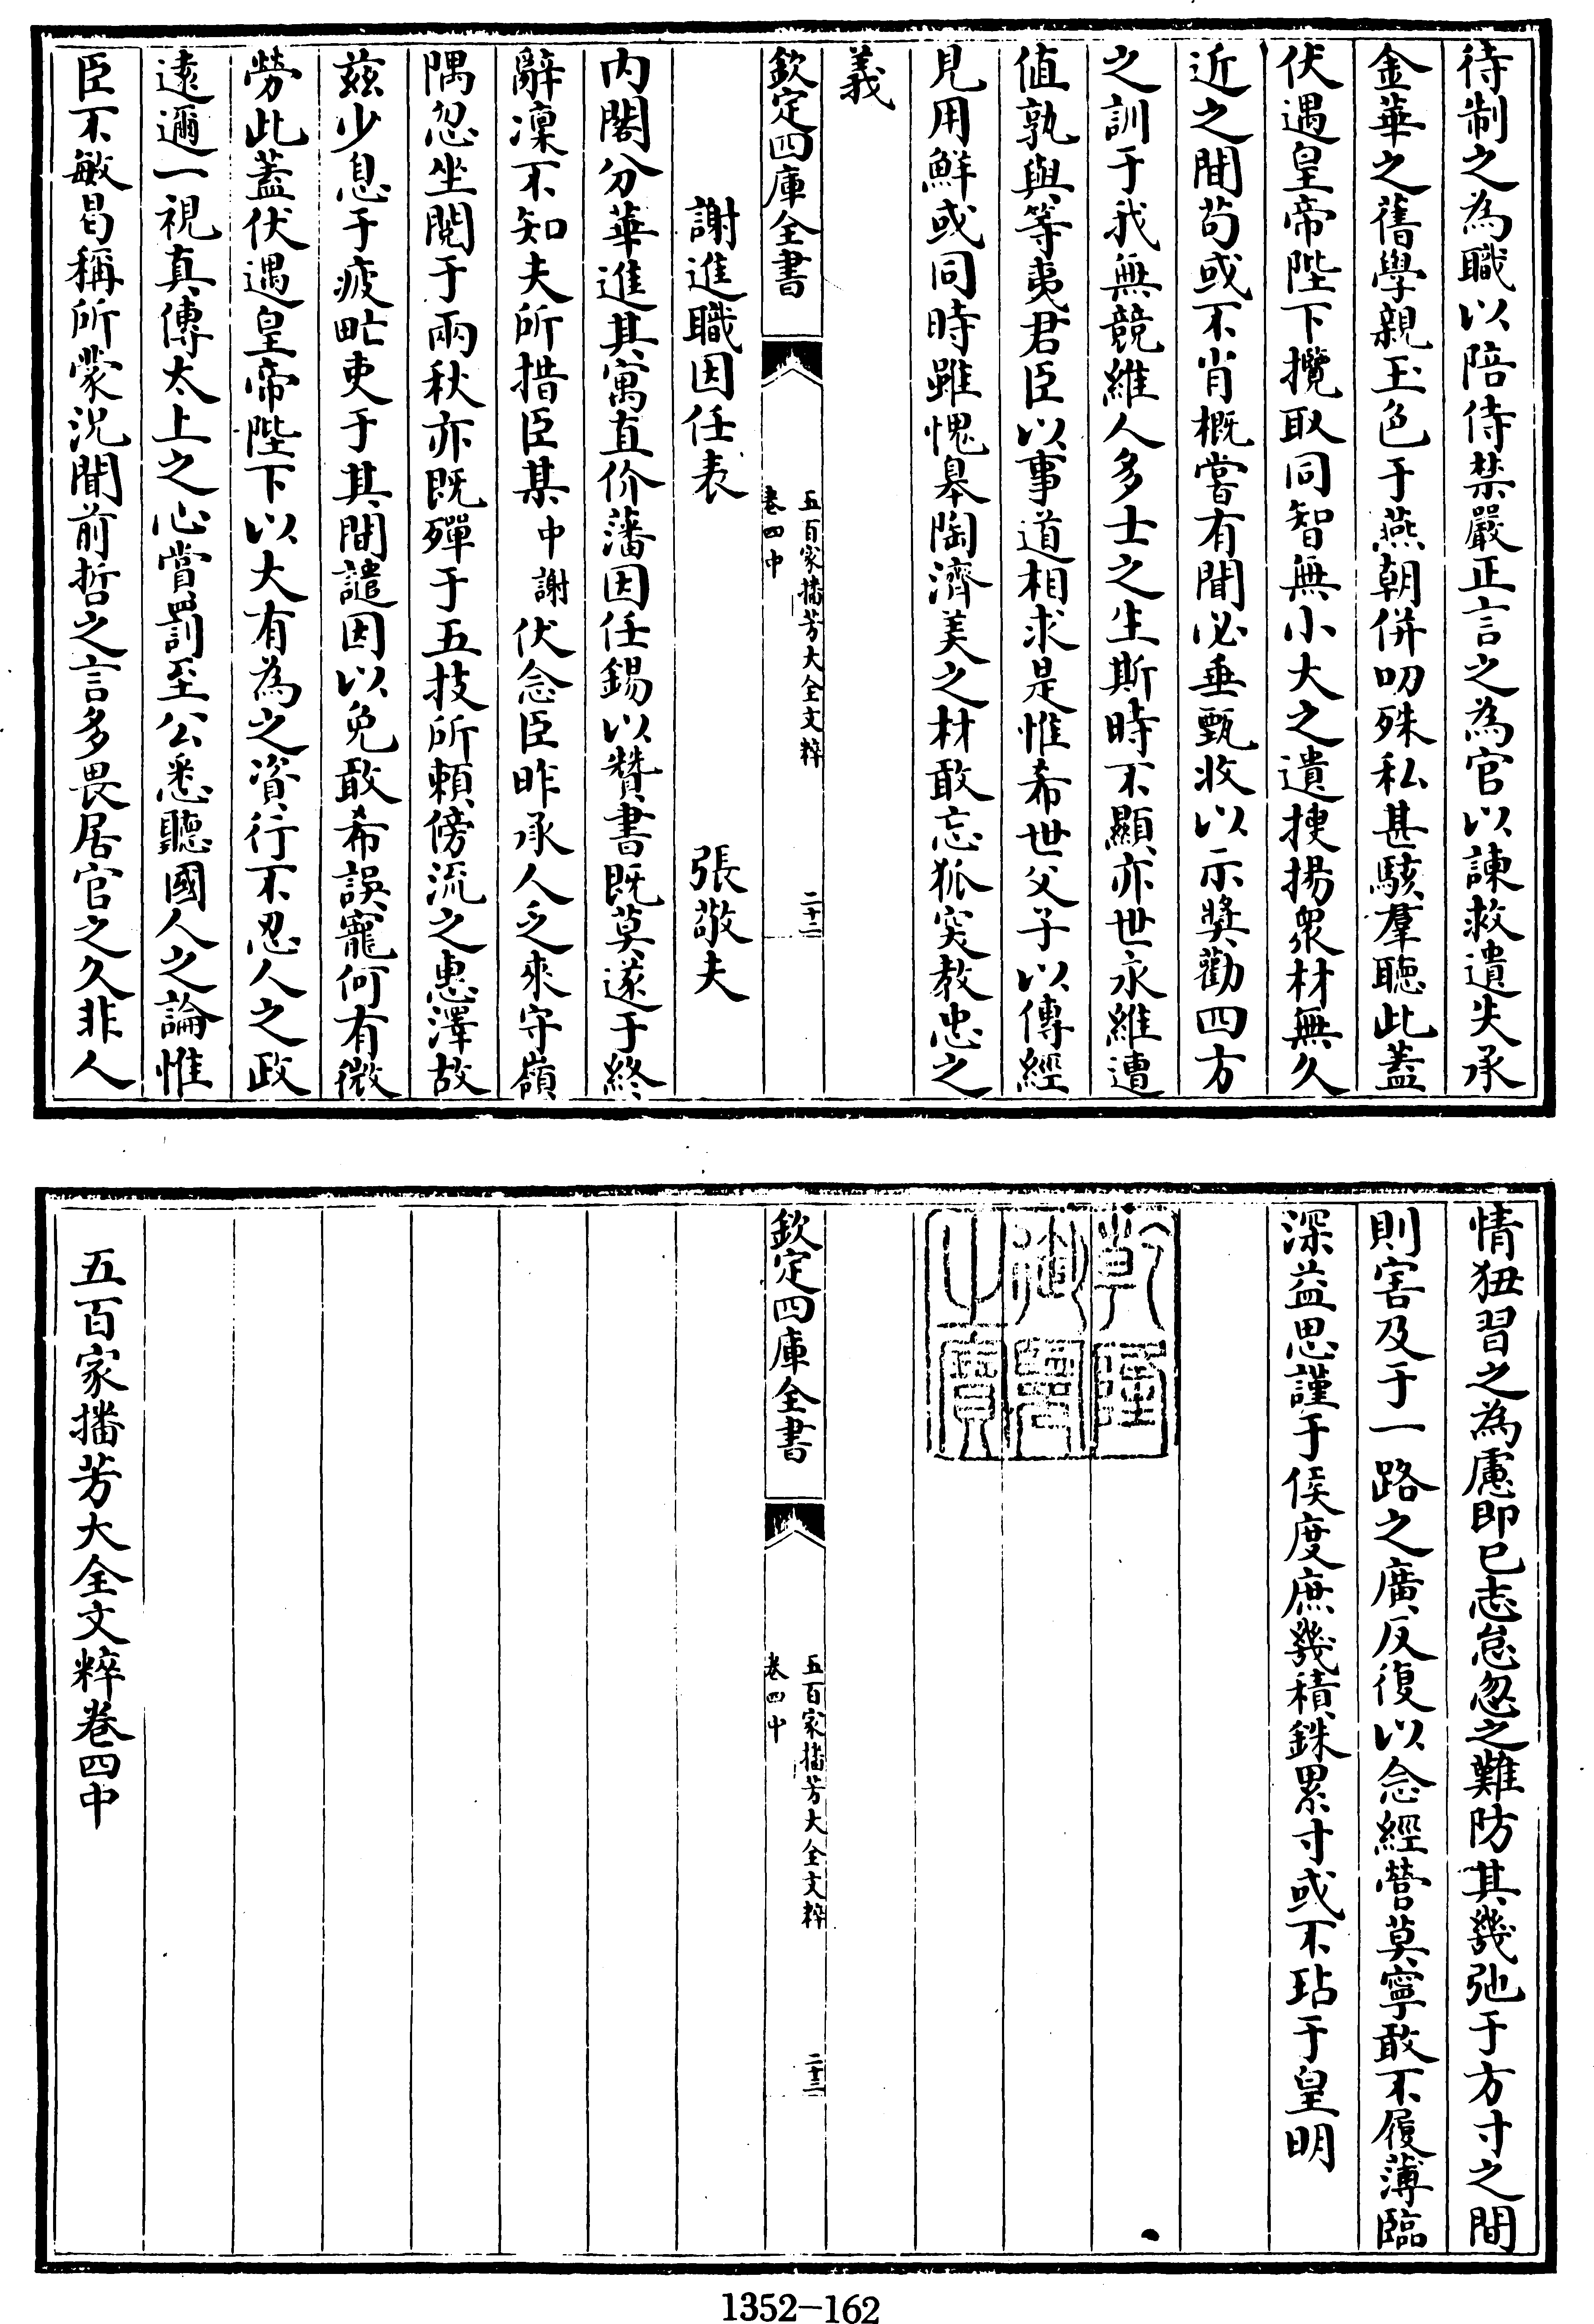 待制之為職以陪侍禁嚴正言之為官以諫救遺失承
金華之舊學親玉色于燕朝併叨殊私甚駭羣聽此蓋
伏遇皇帝陛下攬取同智無小大之遺㨗揚衆材無久
近之間苟或不肖概嘗有聞必垂甄收以示奬勸四方
之訓于我無競維人多士之生斯時不顯亦世永維遭
值孰與等夷君臣以事道相求是惟希世父子以傳經
見用鮮或同時雖愧皋陶濟美之材敢忘狐突教忠之
義
欽定四庫全書
五百家播芳大全文粹
卷四中
二十二
謝進職因任表 張敬夫
内閣分華進其寓直价藩因任錫以贊書既莫遂于終
辭凜不知夫所措臣某中謝伏念臣昨承人乏來守嶺
隅忽坐閲于兩秋亦既殫于五技所頼傍流之惠澤故
兹少息于疲甿吏于其間譴因以免敢希誤寵何有微
勞此蓋伏遇皇帝陛下以大有為之資行不忍人之政
逺邇一視真傳太上之心賞罰至公悉聽國人之論惟
臣不敏曷稱所蒙況聞前哲之言多畏居官之久非人
情狃習之為慮即已志怠忽之難防其幾弛于方寸之間
則害及于一路之廣反復以念經營莫寧敢不履薄臨
深益思謹于侯度庶幾積銖累寸或不玷于皇明
乾隆
御覽
之寶
欽定四庫全書
五百家播芳大全文粹
卷四中
二十三
五百家播芳大全文粹卷四中
1352-162